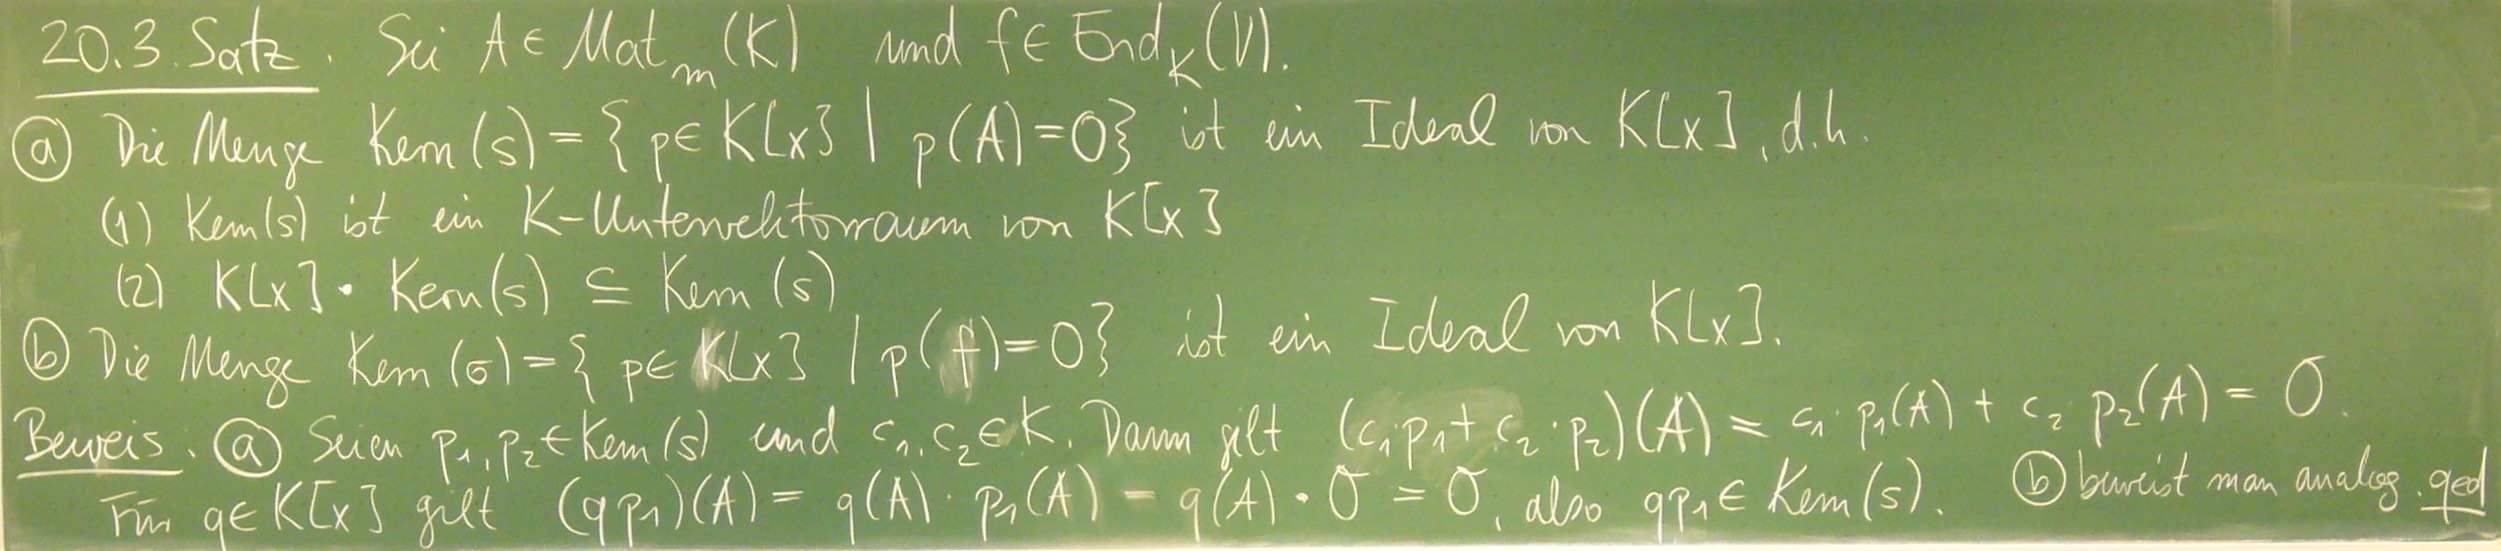 20.3. Satz. Sei A ∈ Mat_m (K) und f ∈ End_K (V).
ⓐ Die Menge Kern(s) = { p ∈ K[x] | p(A) = 0 } ist ein Ideal von K[x], d.h.
(1) Kern(s) ist ein K-Untervektorraum von K[x]
(2) K[x] · Kern(s) ⊆ Kern(s)
ⓑ Die Menge Kern(σ) = { p ∈ K[x] | p(f) = 0 } ist ein Ideal von K[x].
Beweis. ⓐ Seien p₁, p₂ ∈ Kern(s) und c₁, c₂ ∈ K. Dann gilt (c₁·p₁ + c₂·p₂)(A) = c₁·p₁(A) + c₂·p₂(A) = 0.
Für q ∈ K[x] gilt (qp₁)(A) = q(A) · p₁(A) = q(A) · 0 = 0, also qp₁ ∈ Kern(s). ⓑ beweist man analog. qed